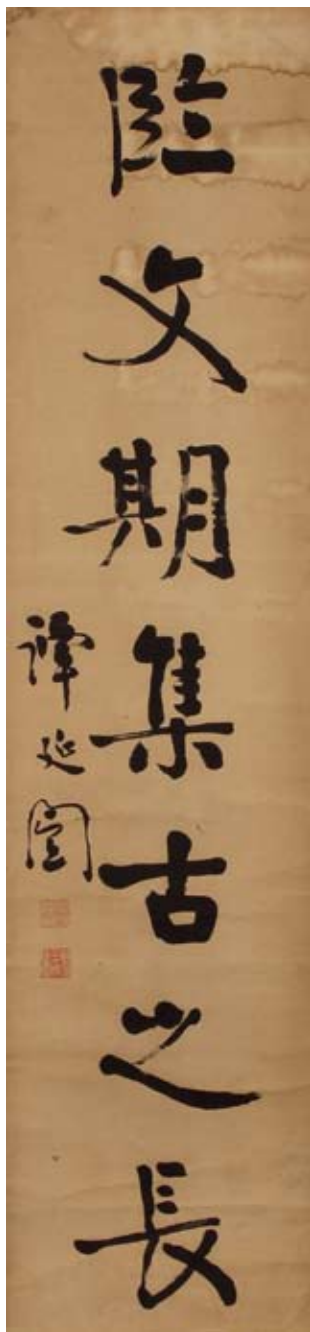 臨文期集古之長
譚延闓